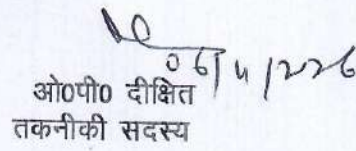 06/4/2026
ओ0पी0 दीक्षित
तकनीकी सदस्य